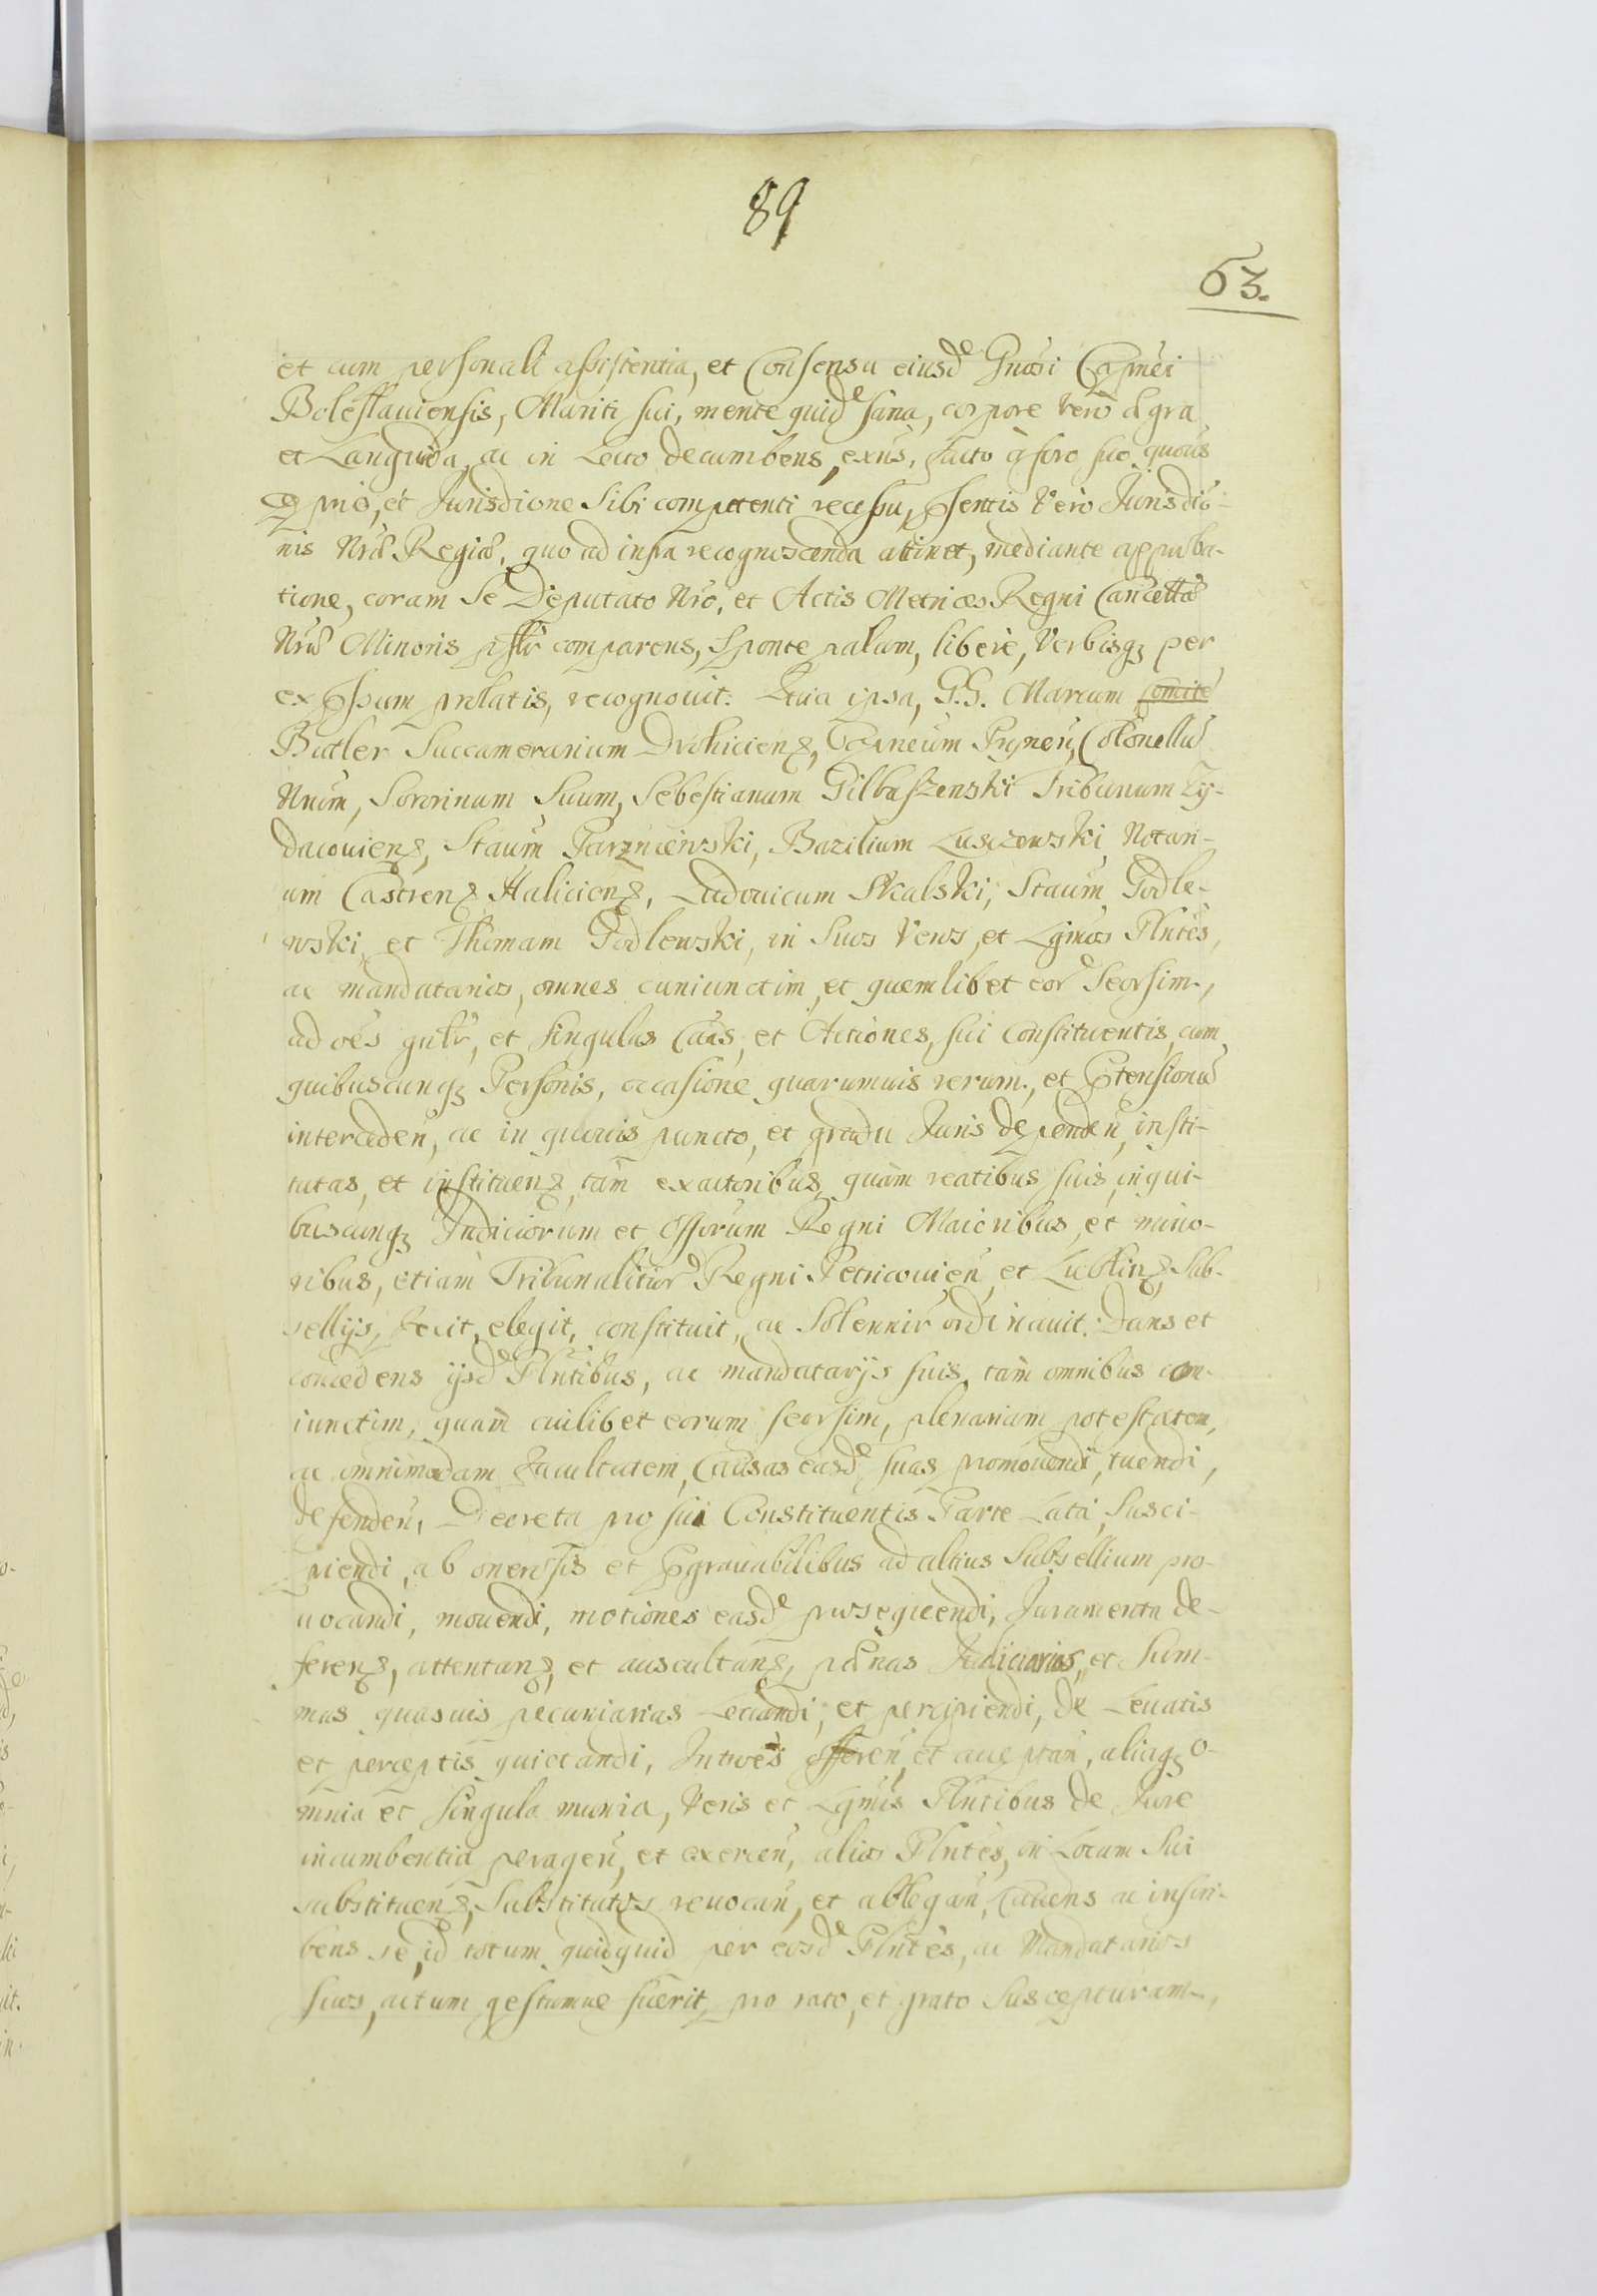 89
63.
et cum personali assistentia, et Consensu eiusde Gnosi Capnei
Boleslauiensis, Mariti sui, mente quide sana, corpore vero ægra
et Languida, ac in Lecto decumbens, exns, facto à foro suo quouis
pprio, et Jurisdione Sibi competenti recessu, psentis Vero Jurisdio-
nis Nræ Regiæ, quo ad infra recognoscenda attinet, mediante approba-
tione, coram Se Deputato Nro, et Actis Metrices Regni Cancellæ
Nræ Minoris psltr comparens, sponte palam, liberè, Verbisq3 per
expssum prolatis, recognouit. Quia ipsa, G.G. Marcum Comite
Butler Succamerarium Drohiciens, Capneum Prynen, Colonellu
Nrum, Sororinum Suum, Sebestianum Gilbaszenski Tribunum Zy-
dacouiens, Staum Parzniewski, Bazilium Luszczewski Notari-
um Castrens Haliciens, Ludouicum Skalski, Staum Godle-
wski, et Thomam Godlewski, in Suos Veros, et Lgmos Plntes,
ac mandatarios, omnes cuniunctim, et quemlibet eor Seorsim,
ad oes gnltr, et singulas Cäas, et Actiones, sui Constituentis, cum
quibuscunq3 Personis, occasione quarumuis rerum, et Ptensionu
interceden, ac in quouis puncto, et gradu Juris dependen, insti-
tutas, et instituens, tam exactoribus, quàm reatibus suis, in qui-
buscunq3 Judiciorum et Offorum Regni Maioribus, et mino-
ribus, etiam Tribunalitior Regni Petricouien et Lublins, Sub-
sellijs, fecit, elegit, constituit, ac Solennir ordinauit. Dans et
concedens ijsde Plntibus, ac mandatarijs suis, tàm omnibus con-
iunctim, quam cuilibet eorum seorsim, plenariam potestatem,
ac omnimodam facultatem, Causas easde suas promouendi, tuendi,
defenden, Decreta pro sui Constituentis Parte Lata, Susci-
piendi, ab onerosis et pgrauabilibus ad altius Subsellium pro-
uocandi, mouendi, motiones easde prosequendi, Juramenta de-
ferens, attentans, et auscultans, pænas Judiciarias, et Sum-
mas quasuis pecuniarias Leuandi, et percipiendi, de Leuatis
et perceptis quietandi, Intromes offeren, et acceptan, aliaq3 o-
mnia et singula munia, Veris et Lgmis Plntibus de Jure
incumbentia peragen, et exercen, alios Plntes, in Locum Sui
substituens, Substitutos reuocan, et ablegan, Cauens ac inscri-
bens se, id totum quidquid per eosde Plntes, ac Mandatarios
suos, actum gestumue fuerit, pro rato, et grato Suscepturam,